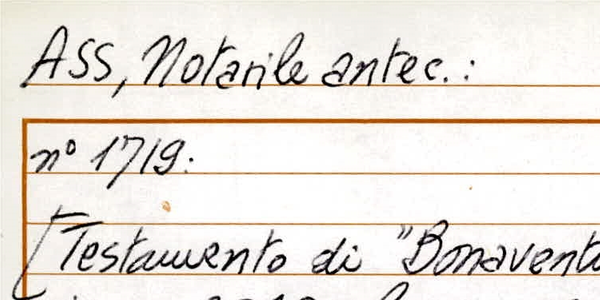 ASS, Notarile antec.:
n° 1719:
[Testamento di "Bonavent